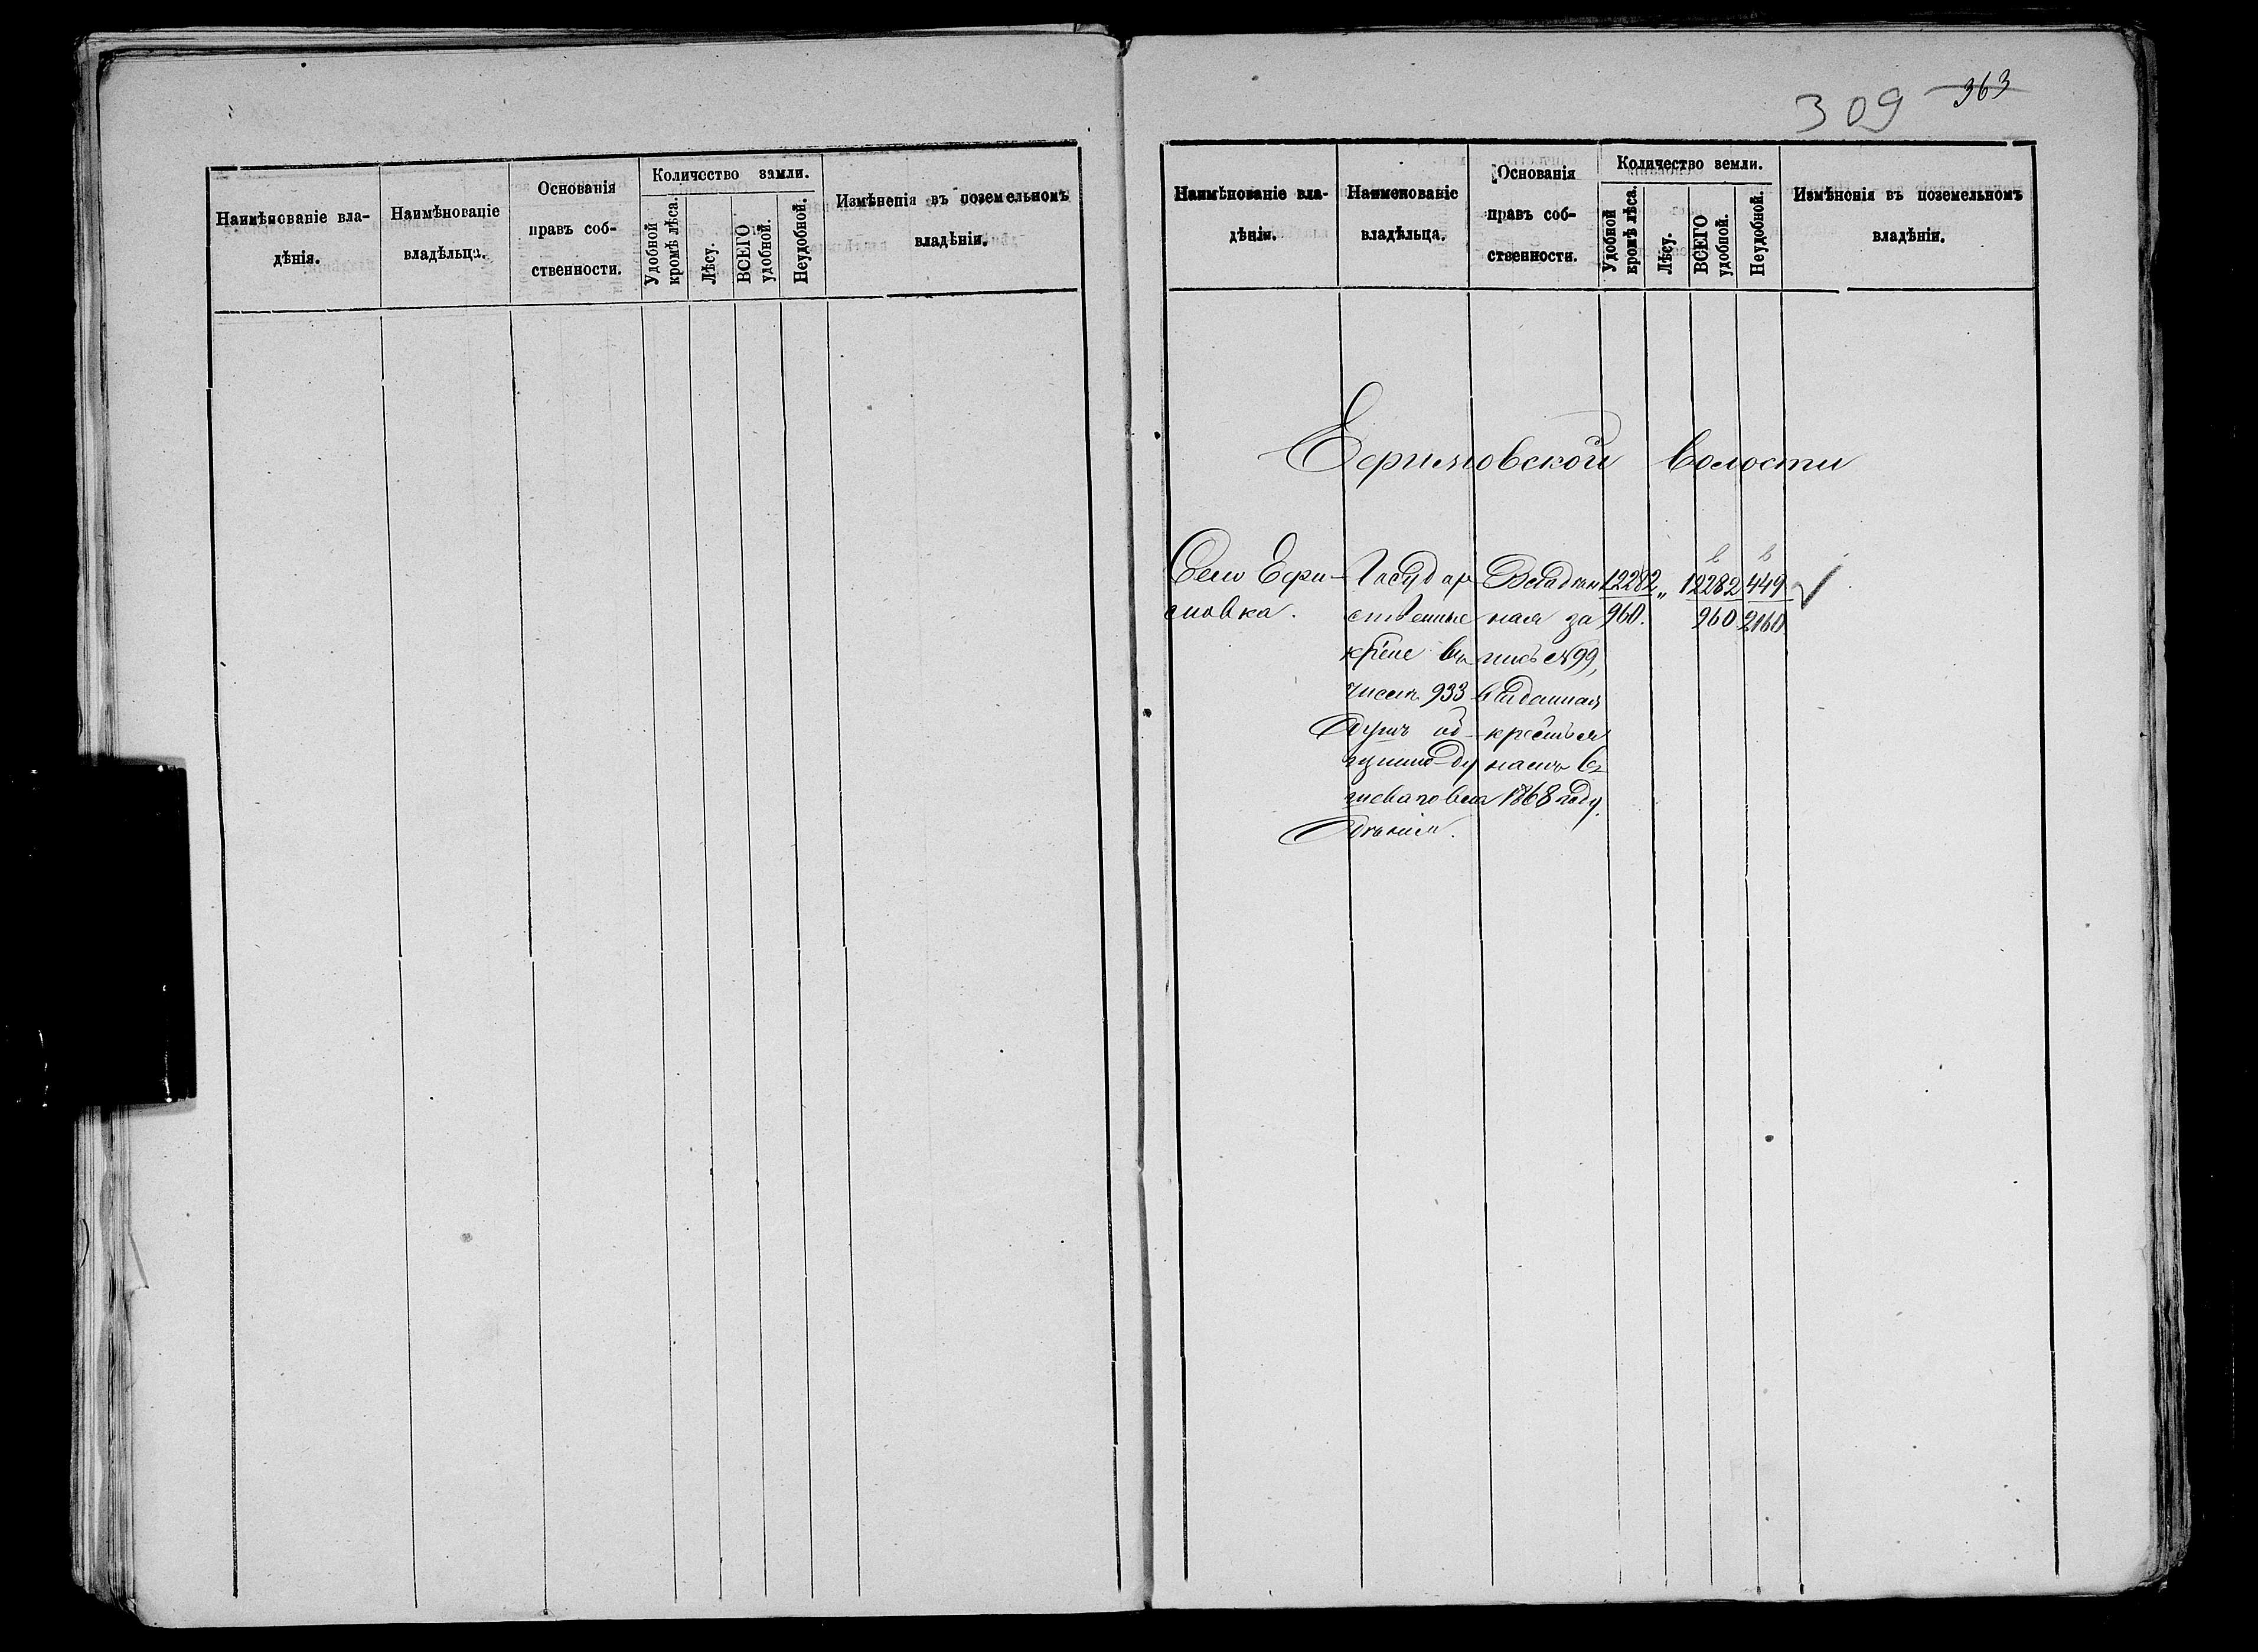 Наимѣнованіе вла-
дѣнія.
Наимѣнованіе
владѣльца.
Основанія
правъ соб-
ственности.
Количество земли.
Удобной
кромѣ лѣса.
Лѣсу.
ВСЕГО
удобной.
Неудобной.
Измѣненія въ поземельномъ
владѣніи.
309 363
Наимѣнованіе вла-
дѣнія.
Наименованіе
владѣльца.
Основанія
правъ соб-
ственности.
Количество земли.
Удобной
кромѣ лѣса.
Лѣсу.
ВСЕГО
удобной.
Неудобной.
Измѣненія въ поземельномъ
владѣніи.
Ефимовской волости
Село Ефи-
мовка.
Государ-
ственные
кр-не въ
числѣ 933
душъ об-
щинно-ду
шеваго вла
дѣнія.
Владѣн
ная за
пись №99,
выданная
крестья
намъ въ
1868 году.
12282
960.
„
12282
960
449
2160.